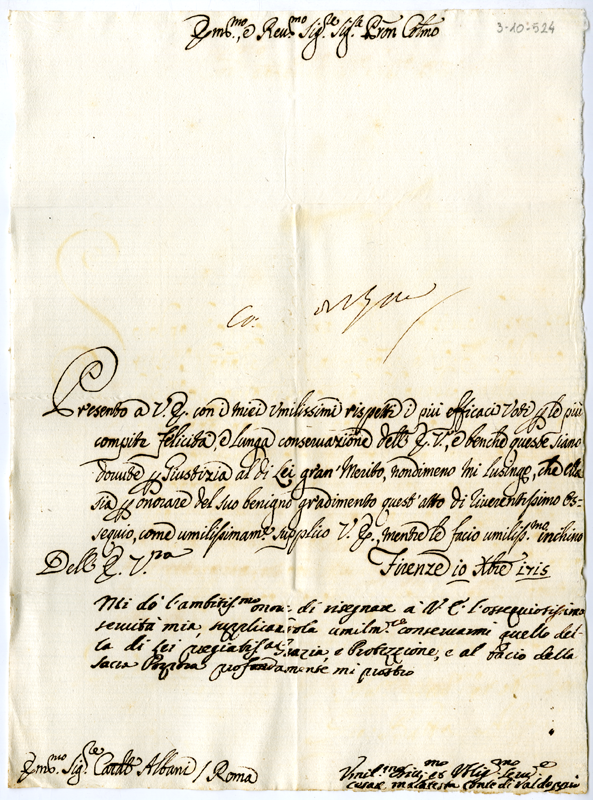 3-10-524
Em.mo, e Reu.mo Sig.re Sig.r P̃ron Col.mo
Co.
Presento a V. E. con i miei umilissimi rispetti i più efficaci Voti p le più
compite felicità, e lunga conservazione dell' E. V., e benche queste siano
douute p Giustizia al di Lei gran Merito, nondimeno mi lusingo, che ella
sia p onorare del suo benigno gradimento quest' atto di riuerentissimo os-
sequio, come umilissimam.e supplico V. E., mentre le facio umiliss.mo inchino
Dell' E. V.ra
Firenze 10 Xbre 1715
Mi dò l'ambitis.mo onor. di risegnare a V. E. l'ossequiosissima
seruità mia, supplicandola umilm.te conseruarmi quello del-
la di Lei pregiatis.a Grazia e Protezzione, e al bacio della
Sacra Porpora profondamente mi prostro
Em.mo Sig.re Card.le Albani / Roma
Umil.mo Diu.mo et Oblig.mo Seru.e
Cesare Malatesta Conte di Valdoppio